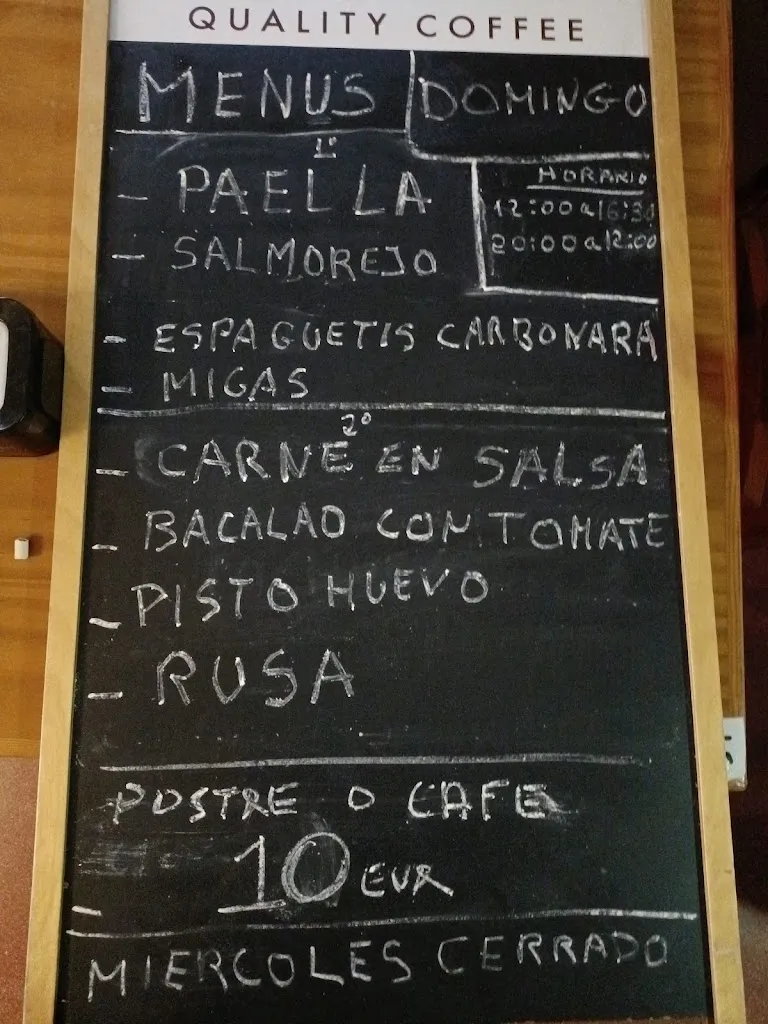 QUALITY COFFEE
MENUS
DOMINGO
1º
- PAELLA
- SALMOREJO
HORARIO
12:00 a 16:30
20:00 a 12:00
- ESPAGUETIS CARBONARA
- MIGAS
2º
- CARNE EN SALSA
- BACALAO CON TOMATE
- PISTO HUEVO
- RUSA
POSTRE O CAFE
10 EUR
MIERCOLES CERRADO